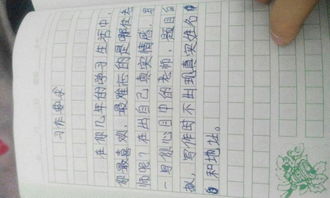 习作要求
在你几年的学习生活中,
你最喜欢、最难忘的是哪位老
师呢?写出自己真实情感,写
一写你心目中的老师,题目自
拟,写作时不出现真实姓名
和地址。